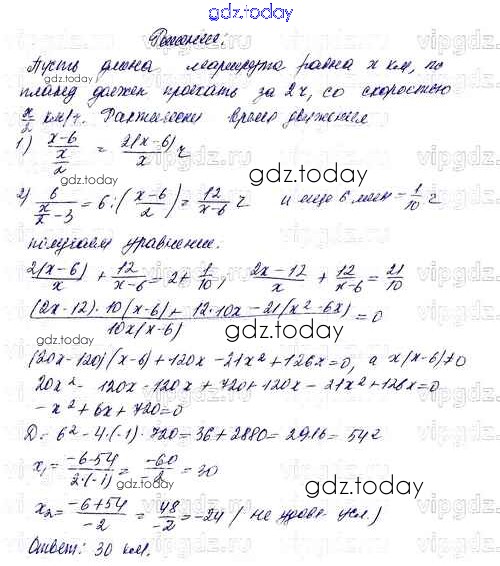 gdz.today
Решение:
Пусть длина маршрута равна x км, по
плану должен проехать за 2ч, со скоростью
x/2 км/ч. Фактически время движения
1) (x-6)/(x/2) = 2(x-6)/x ч
2) 6/(x/2 - 3) = 6:((x-6)/2) = 12/(x-6) ч и еще 6 мин = 1/10 ч
получаем уравнение:
2(x-6)/x + 12/(x-6) = 2 + 1/10; (2x-12)/x + 12/(x-6) = 21/10
((2x-12)·10(x-6) + 12·10x - 21(x²-6x))/(10x(x-6)) = 0
(20x-120)(x-6)+120x-21x²+126x=0, а x(x-6)≠0
20x² - 120x - 120x + 720 + 120x - 21x² + 126x = 0
-x² + 6x + 720 = 0
D = 6² - 4·(-1)·720 = 36 + 2880 = 2916 = 54²
x₁ = (-6-54)/(2·(-1)) = (-60)/(-2) = 30
x₂ = (-6+54)/(-2) = 48/(-2) = -24 (не удовл. усл.)
Ответ: 30 км.
gdz.today